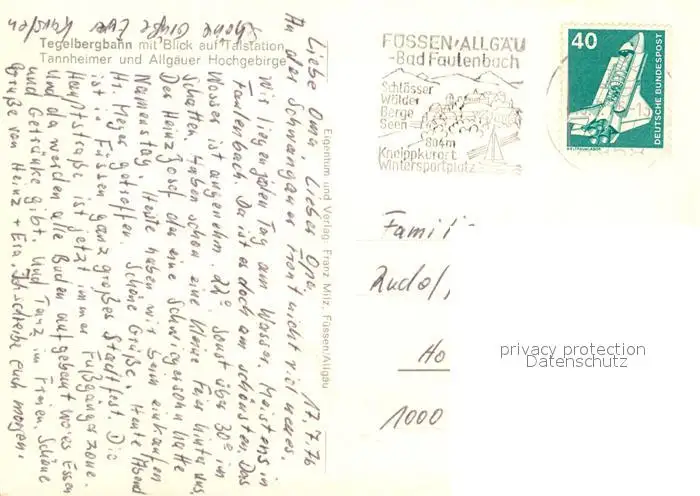 Schöne Grüße Euer Karsten
Tegelbergbahn mit Blick auf Talstation
Tannheimer und Allgäuer Hochgebirge
17.7.76
Liebe Oma, Lieber Opa,
An der Schwangauer Front nicht viel neues.
Wir liegen jeden Tag am Wasser. Meistens in
Faulenbach. Da ist es doch am schönsten. Das
Wasser ist angenehm. 22°. Sonst über 30° im
Schatten. Haben schon eine kleine hinter uns,
Der Heinz Josef der eine Schwiegersohn hatte
Namenstag. Heute haben wir beim einkaufen
Hr. Meyer getroffen. Schöne Grüße. Heute Abend
ist in Füssen ganz großes Stadtfest. Die
Hauptstraße ist jetzt immer Fußgängerzone.
Und da werden alle Buden aufgebaut wo es Essen
und Getränke gibt. Und Tanz im Freien. Schöne
Grüße von Heinz + Eva. Ich schreibe euch morgen.
Eigentum und Verlag: Franz Milz, Füssen/Allgäu
FÜSSEN/ALLGÄU
-Bad Faulenbach
Schlösser
Wälder
Berge
Seen
804m
Kneippkurort
Wintersportplatz
40
DEUTSCHE BUNDESPOST
WELTRAUMLABOR
Famil
Rudolf,
Ho
1000
privacy protection
Datenschutz